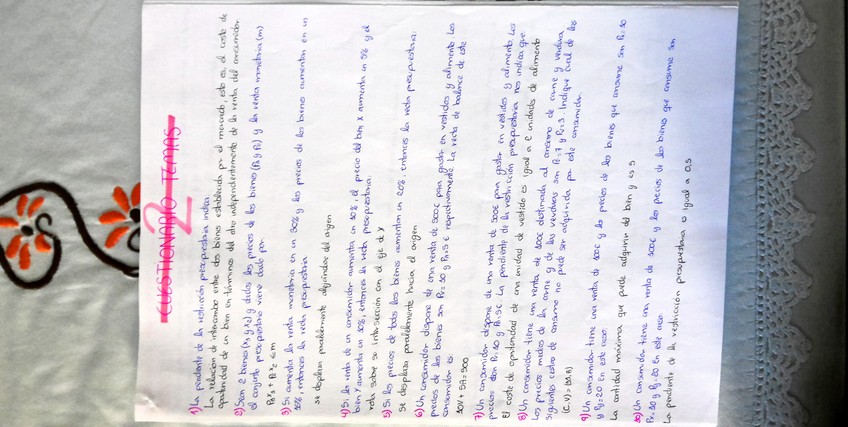 CUESTIONARIO TEMAS
2
1) La pendiente de la restricción presupuestaria indica:
La relacion de intercambio entre dos bienes establecida por el mercado, esto es, el coste de
oportunidad de un bien en términos del otro independientemente de la renta del consumidor
2) Sean 2 bienes (X1 y X2) y dados los precios de los bienes (P1 y P2) y la renta monetaria (m)
el conjunto presupuestario viene dado por:
3) Si aumenta la renta monetaria en un 30% y los precios de los bienes aumentan en un
10%, entonces la recta presupuestaria
se desplaza paralelamente alejandose del origen
4) Si la renta de un consumidor aumenta un 10%, el precio del bien X aumenta un 5% y el
bien Y aumenta un 10%, entonces la recta presupuestaria:
rota sobre su intersección con el eje de Y
5) Si los precios de todos los bienes aumentan un 20%, entonces la recta presupuestaria:
se desplaza paralelamente hacia el origen
6) Un consumidor dispone de una renta de 500€ para gastar en vestidos y alimento. Los
precios de los bienes son Pv=10 y PA=5€ respectivamente. La recta de balance de este
consumidor es:
10V + 5A = 500
7) Un consumidor dispone de una renta de 500€ para gastar en vestidos y alimento. Los
precios son Pv=10 y PA=5€. La pendiente de la restricción presupuestaria nos indica que:
El coste de oportunidad de una unidad de vestido es igual a 2 unidades de alimento
8) Un consumidor tiene una renta de 100€ destinada al consumo de carne y verdura
Los precios medios de la carne y de las verduras son Pc=7 y Pv=3. Indique cual de las
siguientes cestas de consumo no puede ser adquirida por este consumidor.
9) Un consumidor tiene una renta de 100€ y los precios de los bienes que consume son Px=10
y Py=20 En este caso:
La cantidad máxima que puede adquirir del bien y es 5
10) Un consumidor tiene una renta de 500€ y los precios de los bienes que consume son
Px=10 y Py=20 En este caso
La pendiente de la restricción presupuestaria es igual a 0,5